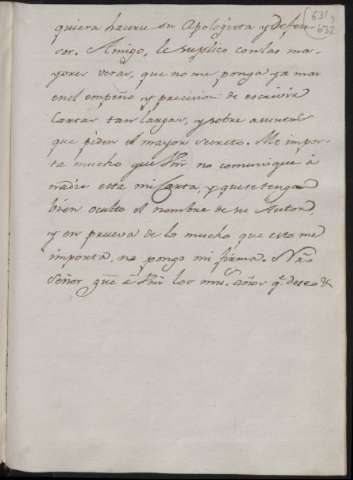 631 y
632
quiera hacerse su Apologista y Defen-
sor. Amigo, le suplico con las ma-
yores veras, que no me ponga ya mas
en el empeño y precision de escrivir
Cartas tan largas, y sobre asuntos
que piden el mayor secreto. Me impor-
ta mucho que Vm̃ no comunique à
nadie esta mi Carta, y que se tenga
bien oculto el nombre de su Autor,
y en prueva de lo mucho que esto me
importa, no pongo mi firma. Nr̃o
Señor gũe à Vm̃ los ms. años q.e deseo &